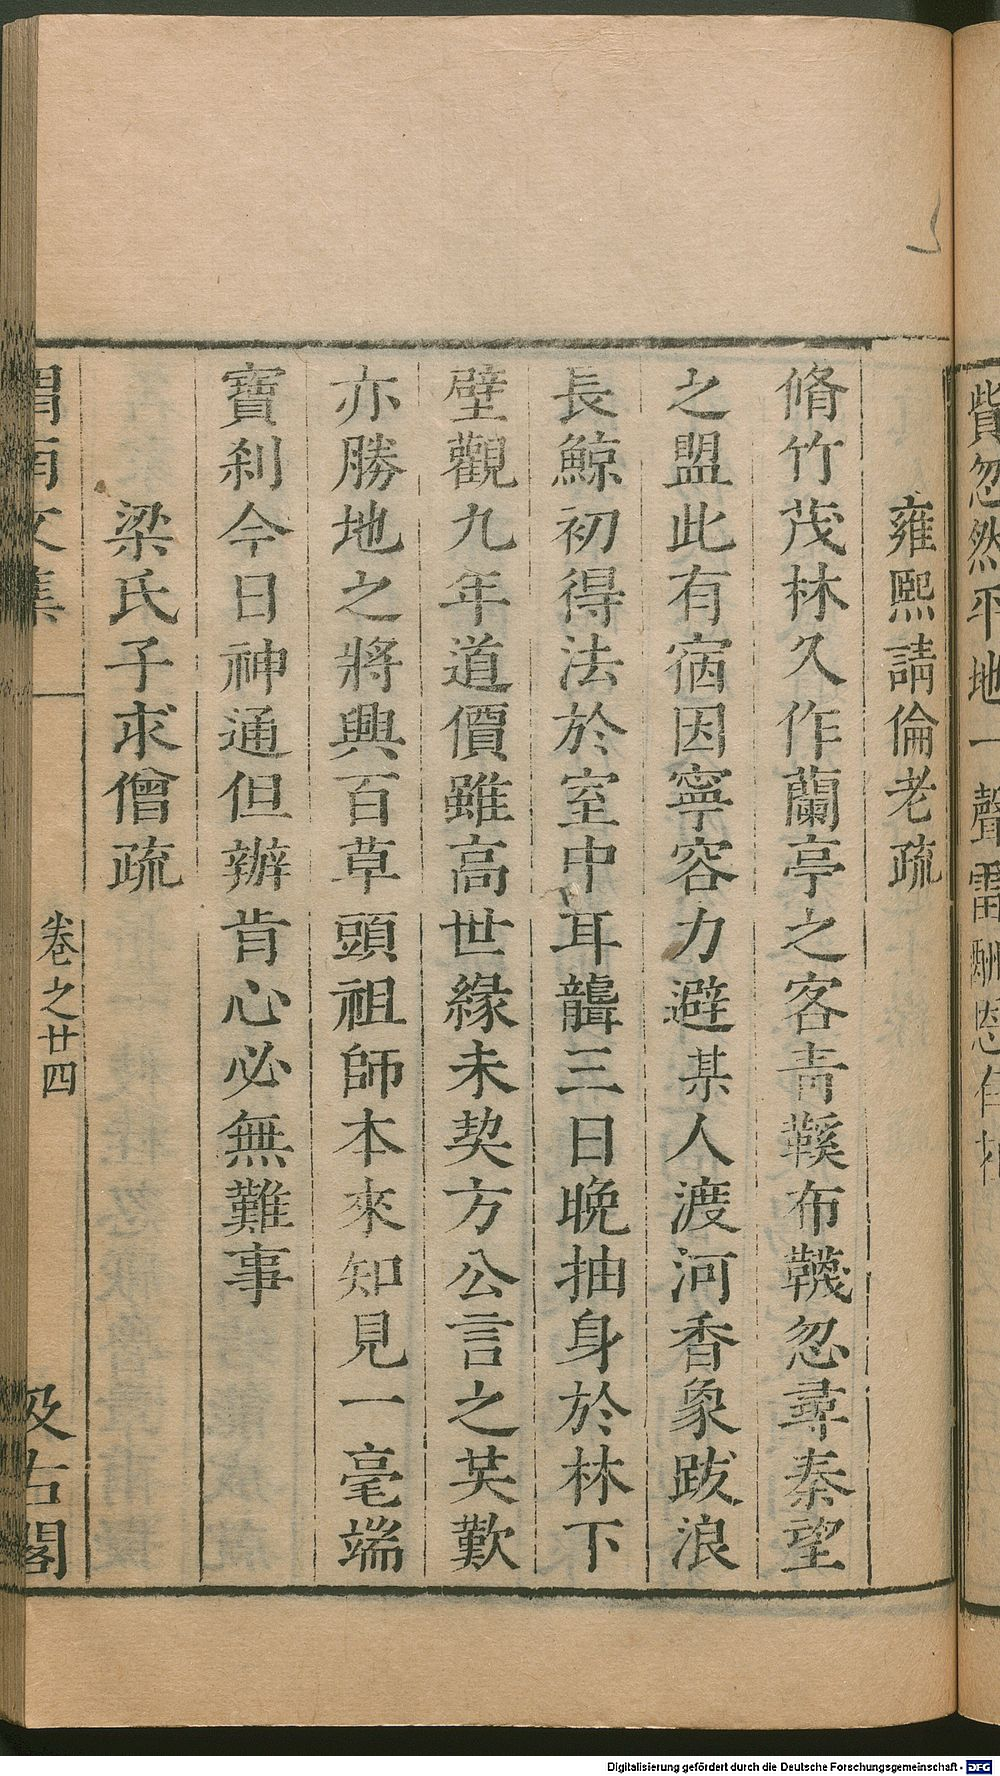 貲忽然平地一聲雷酬恩
雍熙請倫老疏
脩竹茂林久作蘭亭之客青鞵布韈忽尋秦望
之盟此有宿因寧容力避某人渡河香象跋浪
長鯨初得法於室中耳聾三日晚抽身於林下
壁觀九年道價雖高世緣未契方公言之共歎
亦勝地之將興百草頭祖師本來知見一毫端
寶刹今日神通但辦肯心必無難事
梁氏子求僧疏
渭南文集 卷之廿四 汲古閣
Digitalisierung gefördert durch die Deutsche Forschungsgemeinschaft - DFG